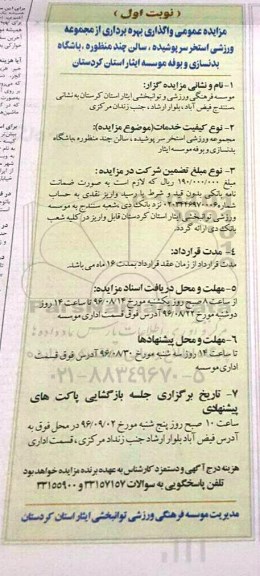 ( نوبت اول )
مزایده عمومی واگذاری بهره برداری از مجموعه
ورزشی استخر سرپوشیده ، سالن چند منظوره ، باشگاه
بدنسازی و بوفه موسسه ایثار استان کردستان
۱- نام و نشانی مزایده گزار:
موسسه فرهنگی ورزشی و توانبخشی ایثار استان کردستان به نشانی
سنندج فیض آباد، بلوار ارشاد، جنب زندان مرکزی
۲- نوع کیفیت خدمات(موضوع مزایده):
مجموعه ورزشی استخر سرپوشیده ، سالن چند منظوره ،باشگاه
بدنسازی و بوفه موسسه ایثار
۳- نوع مبلغ تضمین شرکت در مزایده :
مبلغ ۱۹۰/۰۰۰/۰۰۰ ریال که لازم است به صورت ضمانت
نامه بانکی بدون قید و شرط یا رسید واریز نقدی به حساب
نزد بانک دی شعبه سنندج به موسسه
ورزشی توانبخشی ایثار استان کردستان قابل واریز در کلیه شعب
بانک دی ارائه گردد.
۴- مدت قرارداد:
مدت قرارداد از زمان عقد قرارداد بمدت ۱۶ ماه می باشد.
۵- مهلت و محل دریافت اسناد مزایده:
از ساعت ۸ صبح روز یکشنبه مورخ ۹۶/۰۸/۱۴ تا ساعت ۱۴ روز
دوشنبه مورخ ۹۶/۰۸/۲۲ آدرس فوق قسمت اداری موسسه
۶- مهلت و محل پیشنهادها
تا ساعت ۱۴ روز سه شنبه مورخ ۹۶/۰۸/۳۰ آدرس فوق قسمت
اداری موسسه
۰۲۱-۸۸۳۴۹۶۷۰-۵
۷- تاریخ برگزاری جلسه بازگشایی پاکت های
پیشنهادی
ساعت ۱۰ صبح روز پنج شنبه مورخ ۹۶/۰۹/۰۲ در محل فوق به
آدرس فیض آباد بلوار ارشاد جنب زندان مرکزی ، قسمت اداری
هزینه درج آگهی و دستمزد کارشناس به عهده برنده مزایده خواهد بود
تلفن پاسخگویی به سوالات ۳۳۱۵۷۱۵۷ و ۳۳۱۵۵۹۰۰
مدیریت موسسه فرهنگی ورزشی توانبخشی ایثار استان کردستان